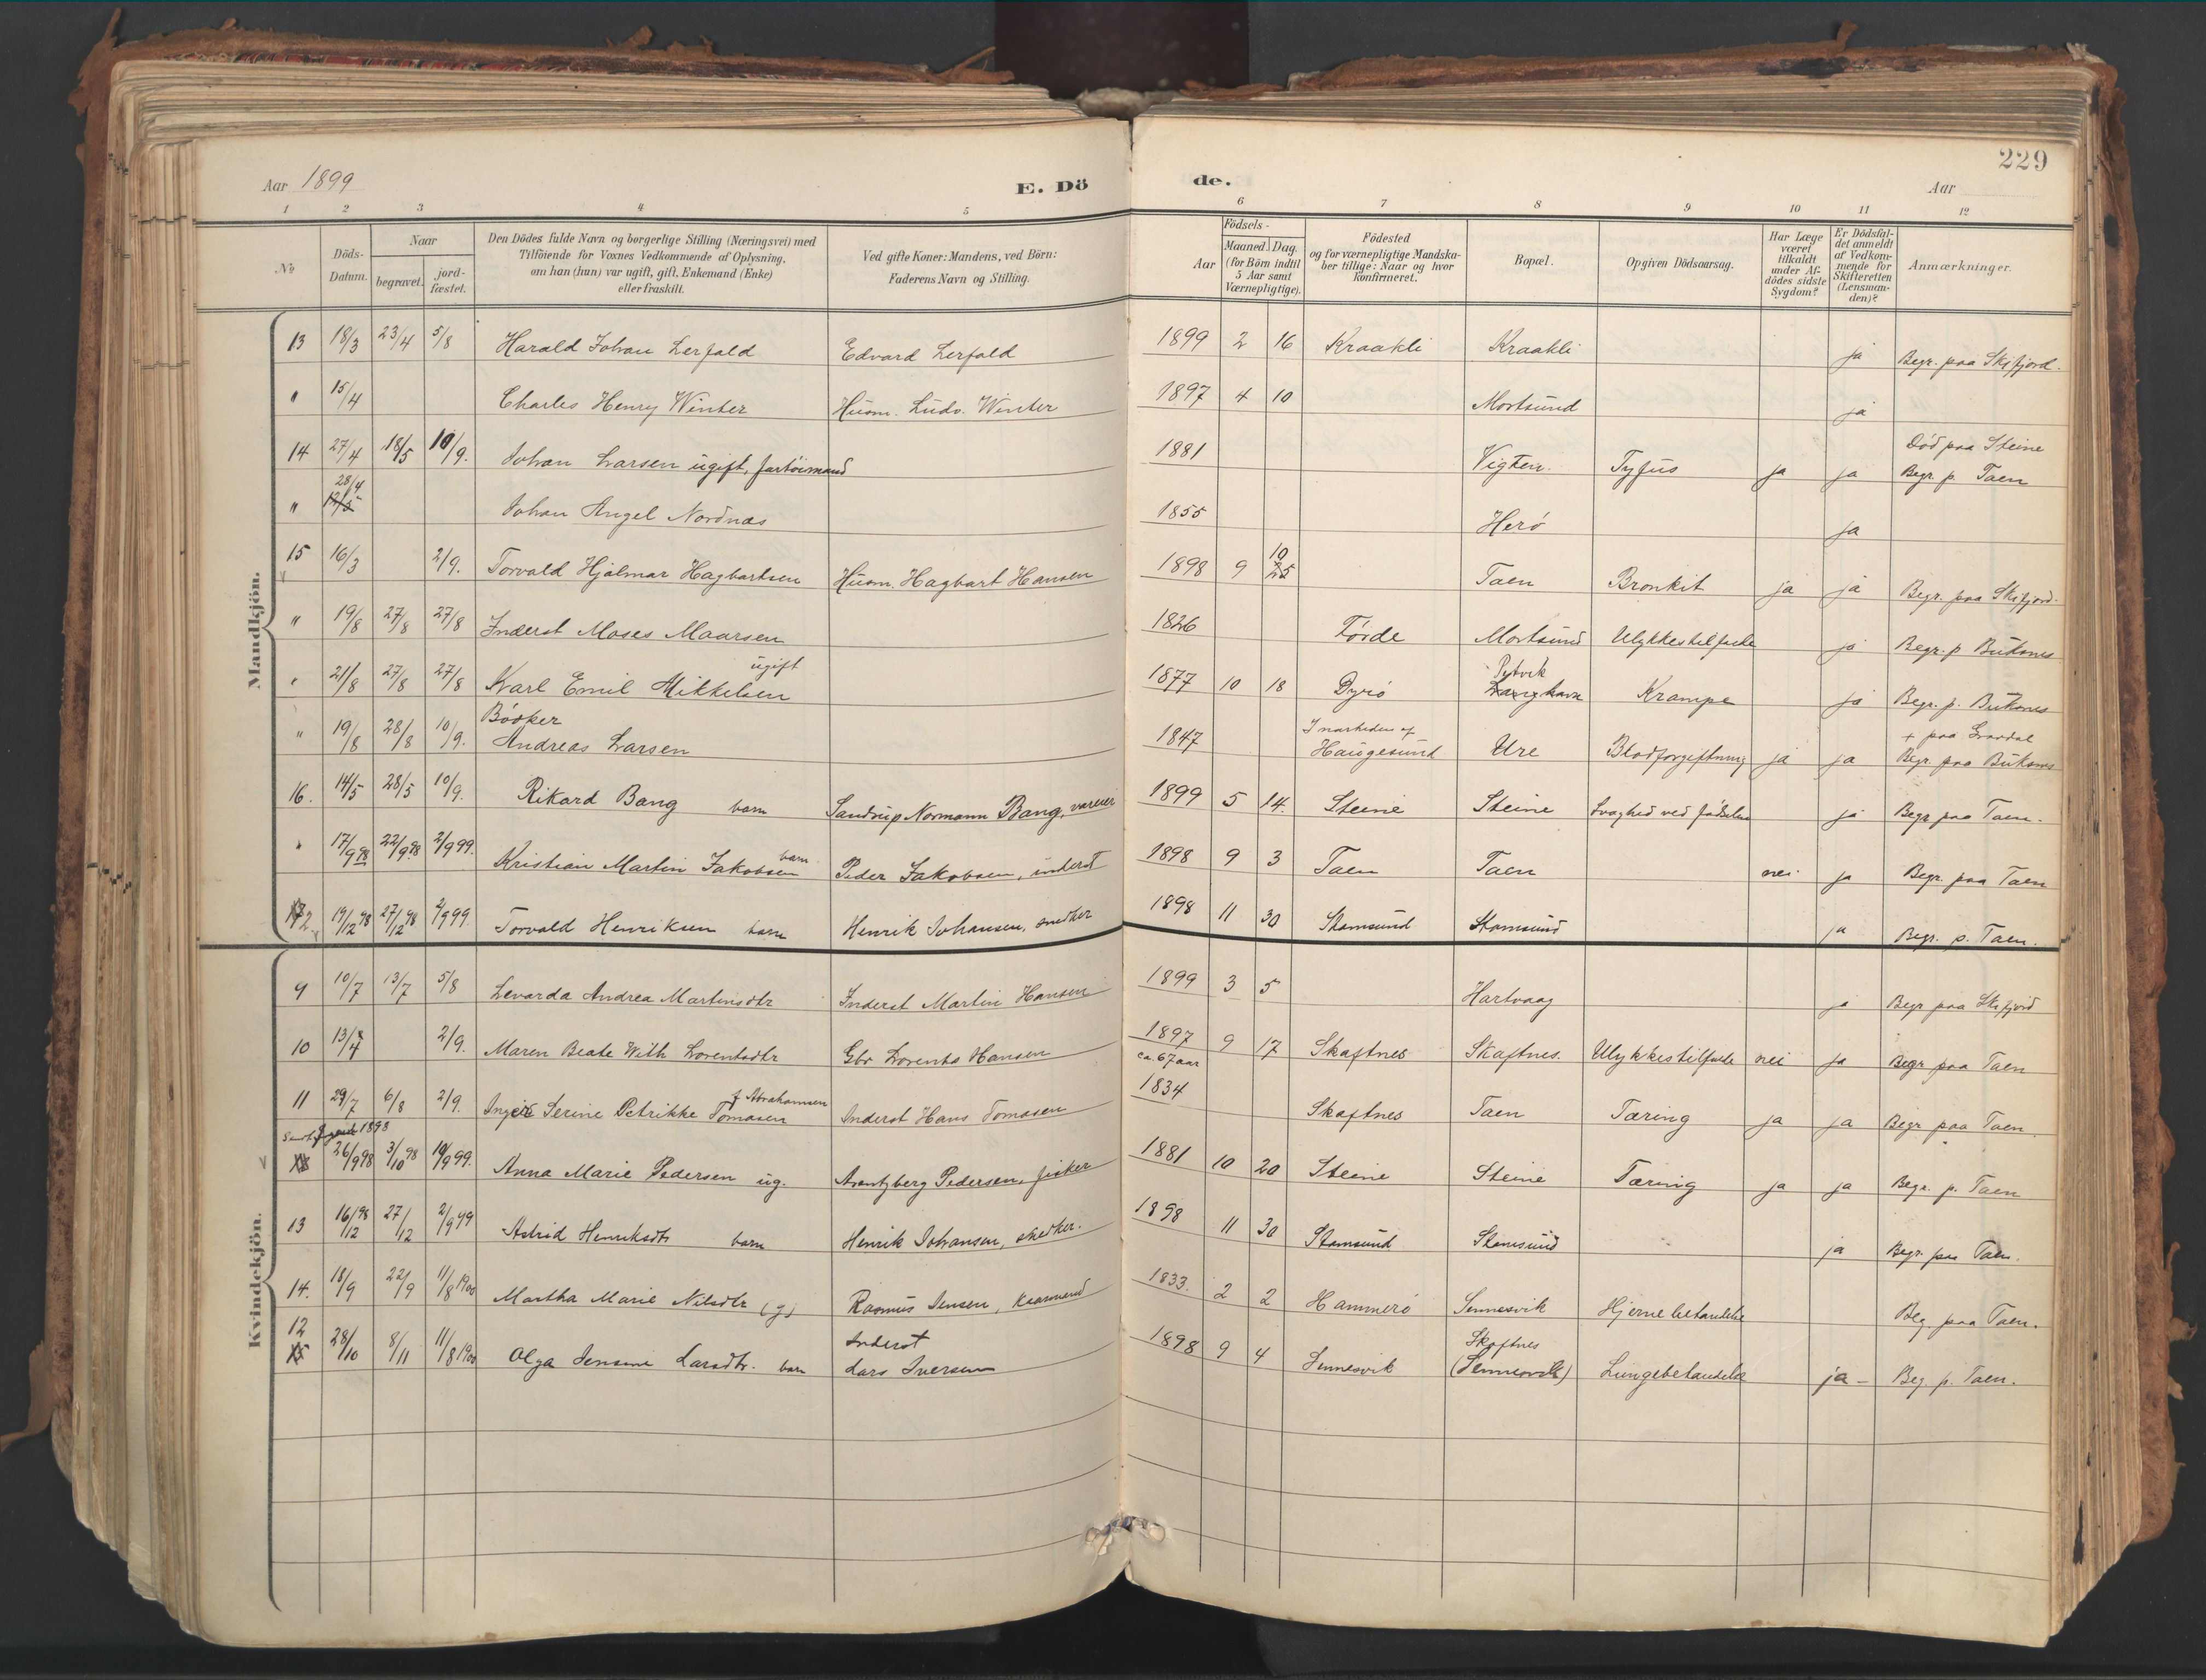 229
Aar 1899
E. Dö
de.
Aar
1 2 3 4 5 6 7 8 9 10 11 12
No
Döds-Datum.
Naar
begravet.
jord-fæstet.
Den Dödes fulde Navn og borgerlige Stilling (Næringsvei) med
Tilföiende for Voxnes Vedkommende af Oplysning,
om han (hun) var ugift, gift, Enkemand (Enke)
eller fraskilt.
Ved gifte Koner: Mandens, ved Börn:
Faderens Navn og Stilling.
Födsels-
Aar
Maaned Dag.
(for Börn indtil
5 Aar samt
Værnepligtige).
Födested
og for værnepligtige Mandska-
ber tillige: Naar og hvor
konfirmeret.
Bopæl.
Opgiven Dödsaarsag.
Har Læge
været
tilkaldt
under Af-
dödes sidste
Sygdom?
Er Dödsfal-
det anmeldt
af Vedkom-
mende for
Skifteretten
(Lensman-
den)?
Anmærkninger.
Mandkjön.
13 18/3 23/4 5/8 Harald Johan Lerfald Edvard Lerfald 1899 2 16 Kraakli Kraakli ja Begr. paa Sksfjord.
" 15/4 Charles Henry Winter Husm. Ludv. Winter 1897 4 10 Mortsund ja
14 27/4 18/5 10/9. Johan Larsen ugift, fartöimand 1881 Vigten Tyfus ja ja Död paa Steine
Begr. p. Taen
" 28/4 Johan Angel Nordnæs 1855 Herö ja
15 16/3 2/9. Torvald Hjalmar Hagbartsen Husm. Hagbart Hansen 1898 9 10 25 Taen Bronkit ja ja Begr. paa Sksfjord.
" 19/8 27/8 27/8 Inderst Moses Maarsen 1826 Förde Mortsund Ulykkestilfælde ja Begr. p Buksnes
" 21/8 27/8 27/8 Karl Emil Mikkelsen ugift 1877 10 18 Dyrö Krampe ja Begr. p. Buksnes
" 19/8 28/8 10/9. Bödker
Andreas Larsen 1847 I nærheden af
Haugesund Ure Blodforgiftning ja ja + paa Gravdal
Begr. paa Buksnes
16. 14/5 28/5 10/9. Rikard Bang barn Sandrup Normann Bang, 1899 5 14. Steine Steine Svaghed ved födselen ja Begr paa Taen.
" 17/9 98 22/9 98 2/9 99. Kristian Martin Jakobsen barn Peder Jakobsen, inderst 1898 9 3 Taen Taen nei. ja Begr. paa Taen
19/12 98 27/12 98 2/9 99. Torvald Henriksen barn Henrik Johansen, snedker 1898 11 30 Stamsund Stamsund ja Begr. p. Taen.
Kvindekjön.
9 10/7 13/7 5/8 Levarda Andrea Martinsdtr Inderst Martin Hansen 1899 3 5 Hartvaag ja Begr paa Sksfjord
10 13/4 2/9. Maren Beate With Lorentsdtr Gbr Lorents Hansen 1897 9 17 Skaftnes Skaftnes. Ulykkestilfælde nei ja Begr paa Taen
11 29/7 6/8 2/9. Inger Serine Petrikke Tomasen f Abrahamsen Inderst Hans Tomasen ca. 67 aar
1834 Skaftnes Taen Tæring ja ja Begr paa Taen.
1898
26/9 98 3/10 98 10/9 99. Anna Marie Pedersen ug. Arentzberg Pedersen, fisker 1881 10 20 Steine Steine Tæring ja ja Begr. p. Taen
13 16/12 98 27/12 2/9 99 Astrid Henriksdtr barn Henrik Johansen, snedker. 1898 11 30 Stamsund Stamsund ja Begr. paa Taen.
14. 18/9 22/9 11/8 1900 Martha Marie Nilsdtr (g) Rasmus Jensen, 1833. 2 2 Hammerö Sennesvik Hjernebetændelse Beg. paa Taen.
12 28/10 8/11 11/8 1900 Olga Jensine Larsdtr. barn Inderst
Lars Iversen 1898 9 4 Sennesvik Skaftnes
(Sennesvik) Lungebetændelse ja - Beg. p. Taen.